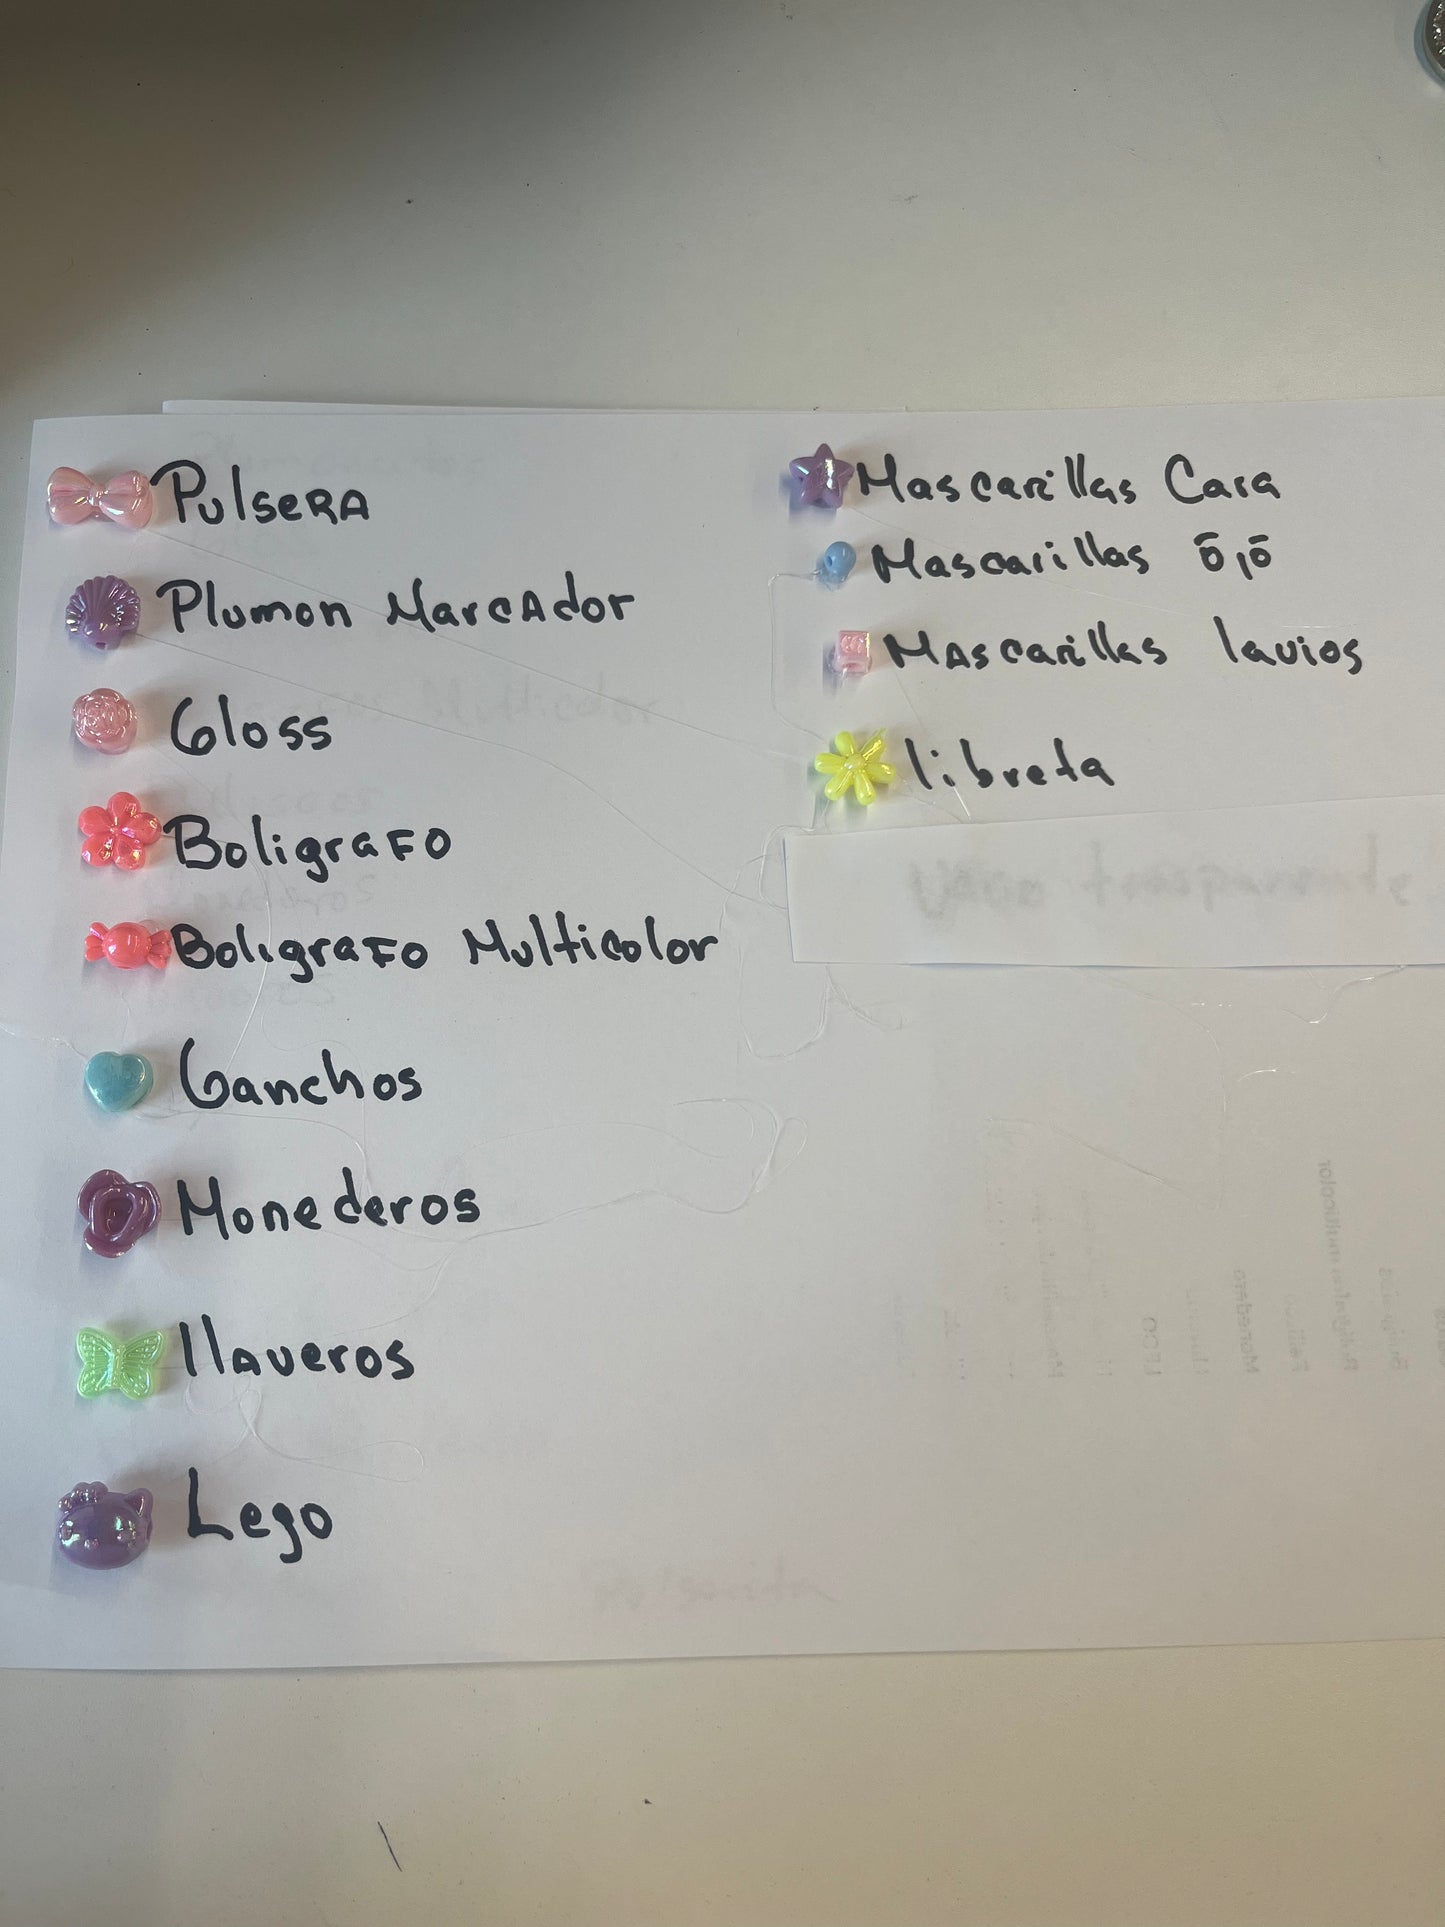 PulseRA
Plumon MarcAdor
Gloss
BoligraFO
BoligraFO Multicolor
Ganchos
Monederos
llaveros
Lego
Mascarillas Cara
Mascarillas
MAscarillas lavios
libreta